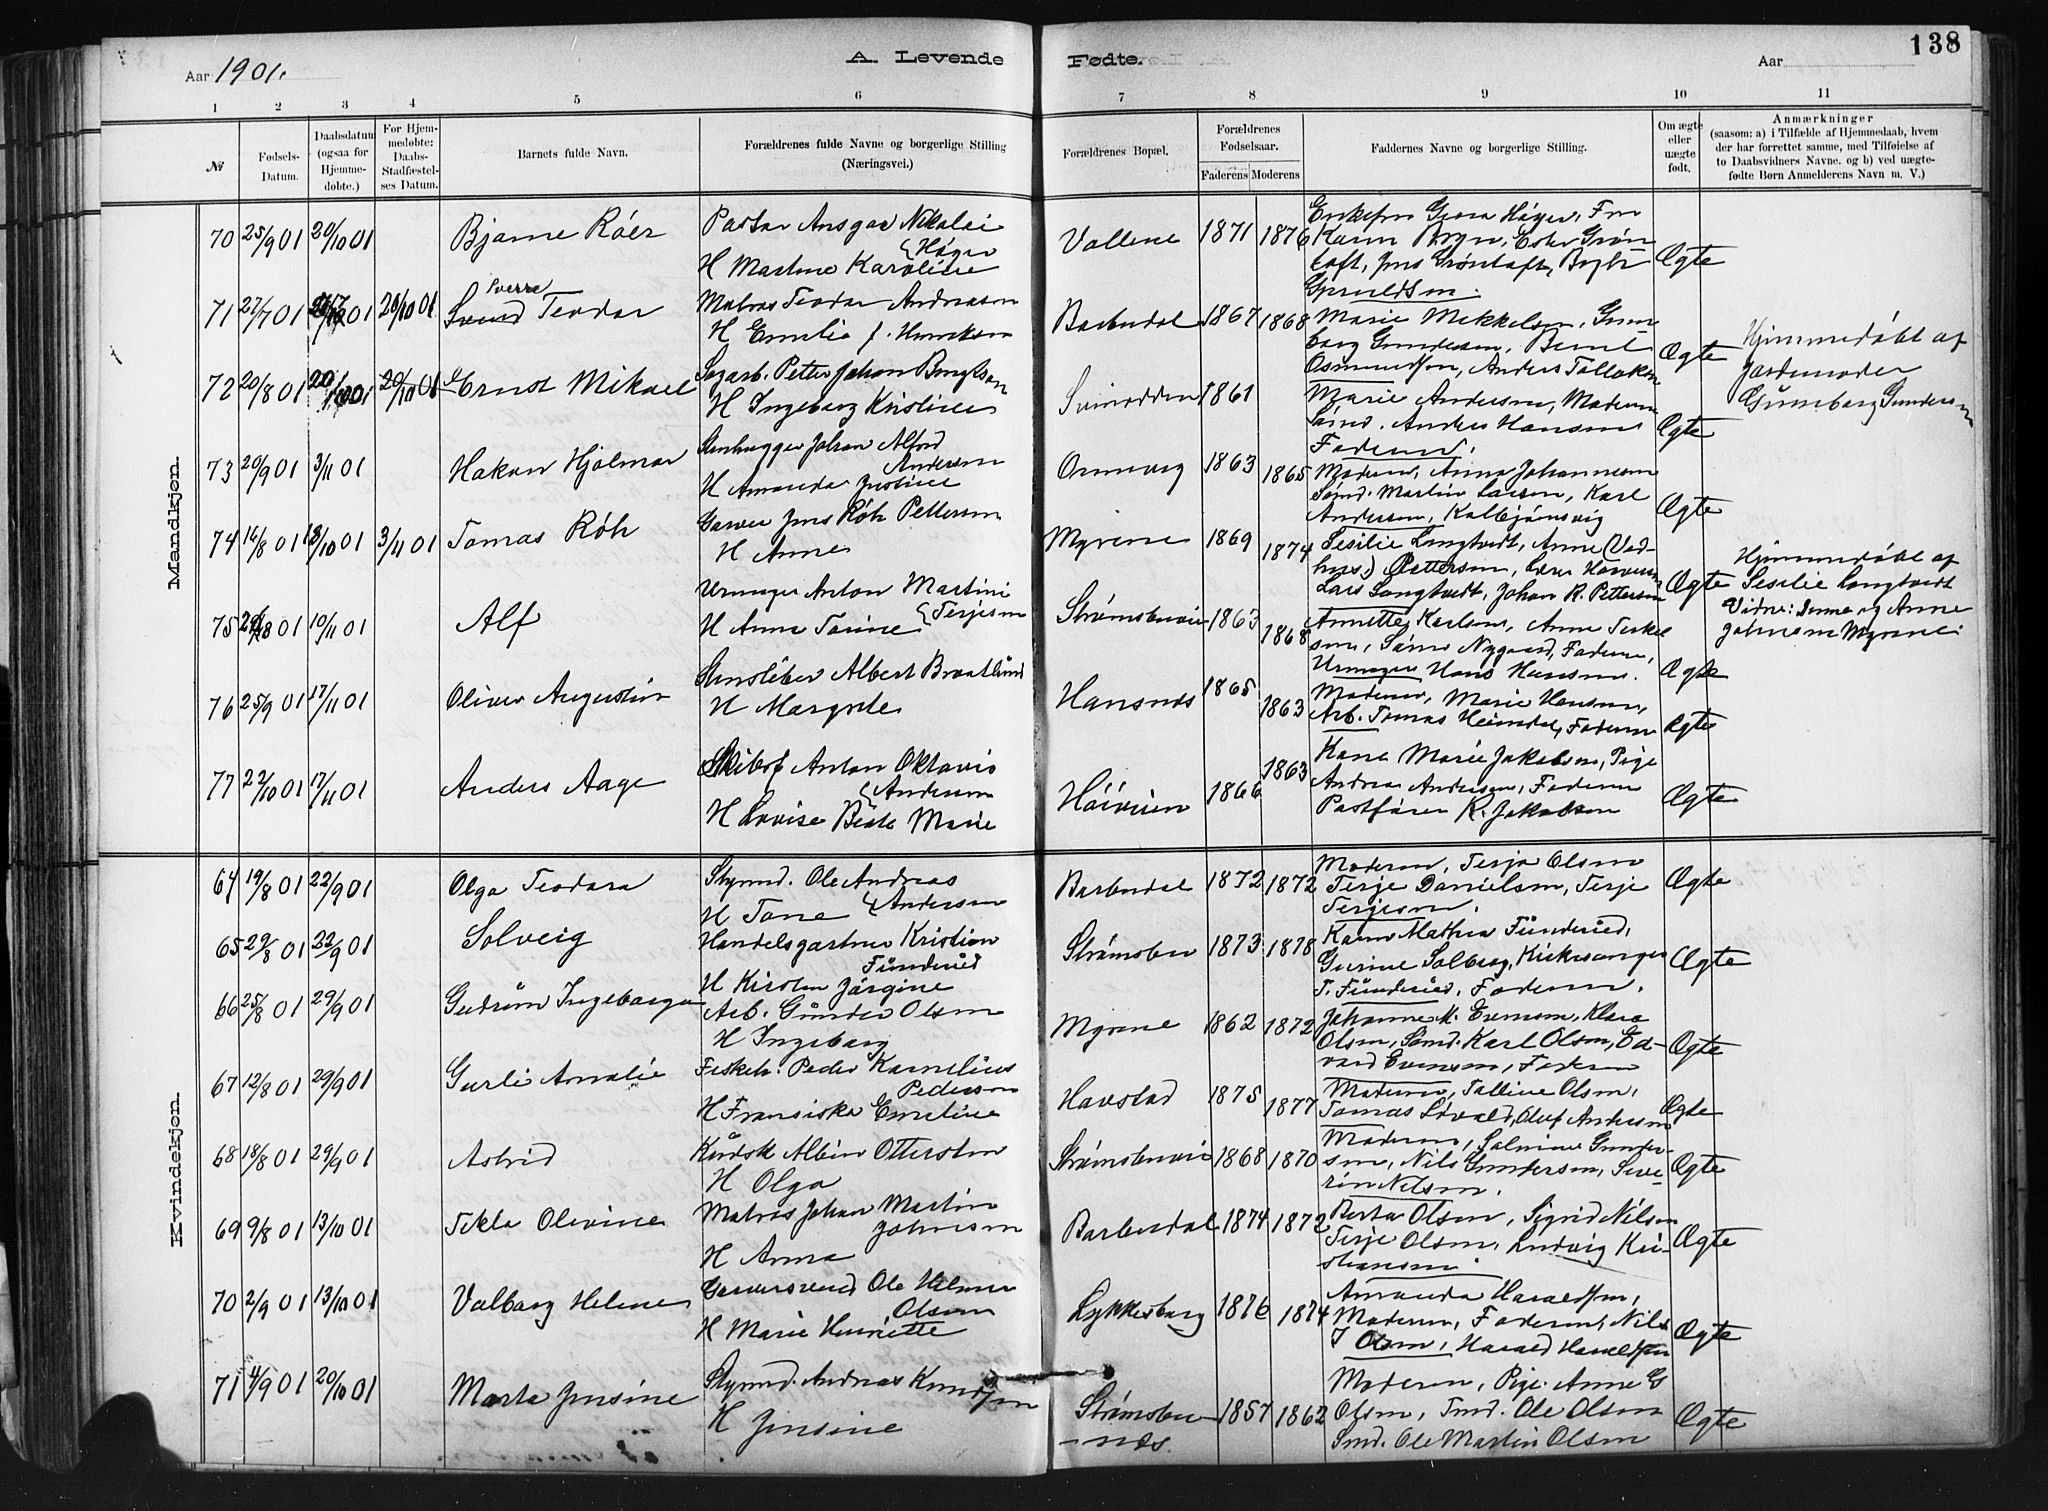 138
Aar 1901.
A. Levende
Fødte.
Aar
1 2 3 4 5 6 7 8 9 10 11
№
Fødsels-
Datum.
Daabsdatum
(ogsaa for
Hjemme-
døbte.)
For Hjem-
medøbte:
Daabs-
Stadfæstel-
ses Datum.
Barnets fulde Navn.
Forældrenes fulde Navne og borgerlige Stilling
(Næringsvei.)
Forældrenes Bopæl.
Forældrenes
Fødselsaar.
Faderens Moderens
Faddernes Navne og borgerlige Stilling.
Om ægte
eller
uægte
født.
Anmærkninger
(saasom: a) i Tilfælde af Hjemmedaab, hvem
der har forrettet samme, med Tilføielse af
to Daabsvidners Navne. og b) ved uægte-
fødte Børn Anmelderens Navn m. V.)
Mandkjøn.
70 25/9 01 20/10 01 Bjarne Röer
Pastor Ansgar Nikolai
Høyer
H Martine Karoline
1871 1876
Karen Bryn, Ester Grøn-
toft, Jens Grøntoft,
Ægte
71 27/7 01 20/10 01
Sverre
Teodor
Matros Teodor Andreasen
H Emilie f. Henriksen
Barbudal 1867 1868
Marie Mikkelsen, Gun-
borg Gundersen, Bernt
Osmundsen, Anders
Ægte
Hjemmedøbt af
Jordemoder
Gunborg Gundersen
72 20/8 01 20/10 01 Ernst Mikael
Sagarb. Petter Johan
H Ingeborg Kristine
Svinodden 1861
Marie Andersen, Moderen
Sømd. Anders Hansen
Faderen.
Ægte
73 20/9 01 3/11 01 Hakon Hjalmar
Stenhugger Johan Alfred
Andersen
H Amanda Justine
1863 1865
Moderen, Anna Johannesen
Sømd. Martin Larsen, Karl
Andersen, Kolbjørnsvig
Ægte
74 14/8 01 13/10 01 3/11 01 Tomas Röh
Garver Jens Röh Pettersen
H Anne
Myrene 1869 1874
Sesilie Langtvedt, Anne (Ved-
hus.) Pettersen,
Lars Langtvedt, Johan R. Pettersen
Ægte
Hjemmedøbt af
Sesilie Langtvedt
Vidne: Denne og Anne
Johnsen Myrene.
75 01 10/11 01 Alf
Urmager Anton Martini
Terjesen
H Anne Tarine
Strømsbuvei 1863 1868
Annette Karlsen, Anne Terkel-
sen, Nygaard, Faderen,
Urmager Hans Hansen.
Ægte
76 25/9 01 17/11 01 Oliver Augustin
Albert Braatlund
H Margrete
Hansnes 1865 1863
Moderen, Marie Hansen,
Arb. Tomas Heimdal, Faderen
Ægte
77 22/10 01 17/11 01 Anders Aage
Skibsf Anton Oktavis
Andersen
H Lovise Beate Marie
Höiveien 1866 1863
Kone Marie Jakobsen, Pige
Andrea Andersen, Faderen
Postfører K. Jakobsen
Ægte
Kvindekjøn.
64 19/8 01 22/9 01 Olga Teodora
Styrmd. Ole Andreas
Andersen
H Tone
Barbudal 1872 1872
Moderen, Terje Olsen
Terje Danielsen, Terje
Terjesen.
Ægte
65 29/8 01 22/9 01 Solveig
Handelsgartner Kristian
H Kirsten Jörgine
Strømsbu 1873 1878
Karen Mathea
Gurine Solberg, Kirkesanger
Faderen.
Ægte
66 25/8 01 29/9 01 Gudrun Ingeborga
Arb. Gunder Olsen
H Ingeborg
Myrene 1862 1872
Johanne M. Evensen, Klara
Olsen, Sømd. Karl Olsen, Ed-
vard Evensen, Faderen
Ægte
67 12/8 01 29/9 01 Gurli Amalie
Fiskeh. Peder Kornelius
Pedersen
H Fransiska Emeline
Havstad 1875 1877
Moderen, Talline Olsen,
Tomas Lövald, Oluf Andersen
Ægte
68 18/8 01 29/9 01 Astrid
Kudsk Albin Ottersten
H Olga
Strømsbuvei 1868 1870
Moderen, Salmine Gunder-
sen, Nils Gundersen, Seve-
rin Nilsen.
Ægte
69 9/8 01 13/10 01 Tekla Olivine
Matros Johan Martin
Johnsen
H Anna
Barbudal 1874 1872
Berta Olsen, Sigrid Nilsen
Terje Olsen, Ludvig Kri-
stiansen.
Ægte
70 2/9 01 13/10 01 Valborg Helene
Garversvend Ole Helmer
Olsen
H Marie Henriette
Lykkesborg 1876 1874
Amanda Haraldsen,
Moderen, Faderen, Nils
J Olsen, Harald Haraldsen
Ægte
71 4/9 01 20/10 01 Marta Jensine
Styrmd. Andreas Knudsen
H Jensine
Strømsbu-
-nes. 1857 1862
Moderen, Pige Anne G
Olsen, Tmd. Ole Olsen
Smd. Ole Martin Olsen
Ægte